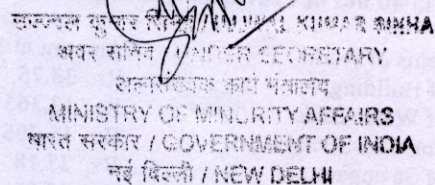 कुमार सिन्हा / UJJWAL KUMAR SINHA
अवर सचिव / UNDER SECRETARY
अल्पसंख्यक कार्य मंत्रालय
MINISTRY OF MINORITY AFFAIRS
भारत सरकार / GOVERNMENT OF INDIA
नई दिल्ली / NEW DELHI